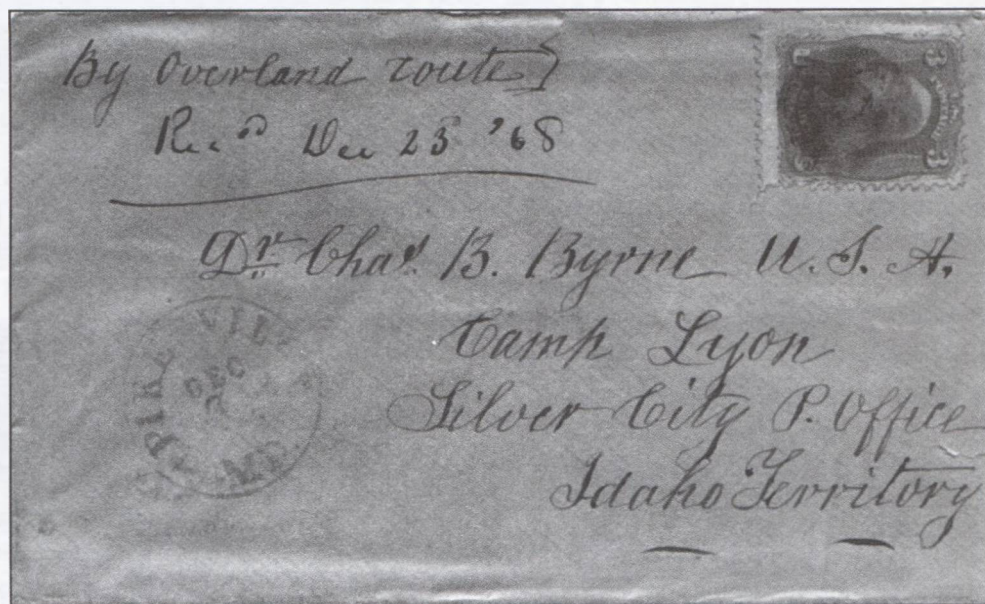 By Overland route
Rec'd Dec 23 '68
Dr Chas B. Byrne U. S. A.
Camp Lyon
Silver City P. Office
Idaho Territory
DEC
MD.
3
3